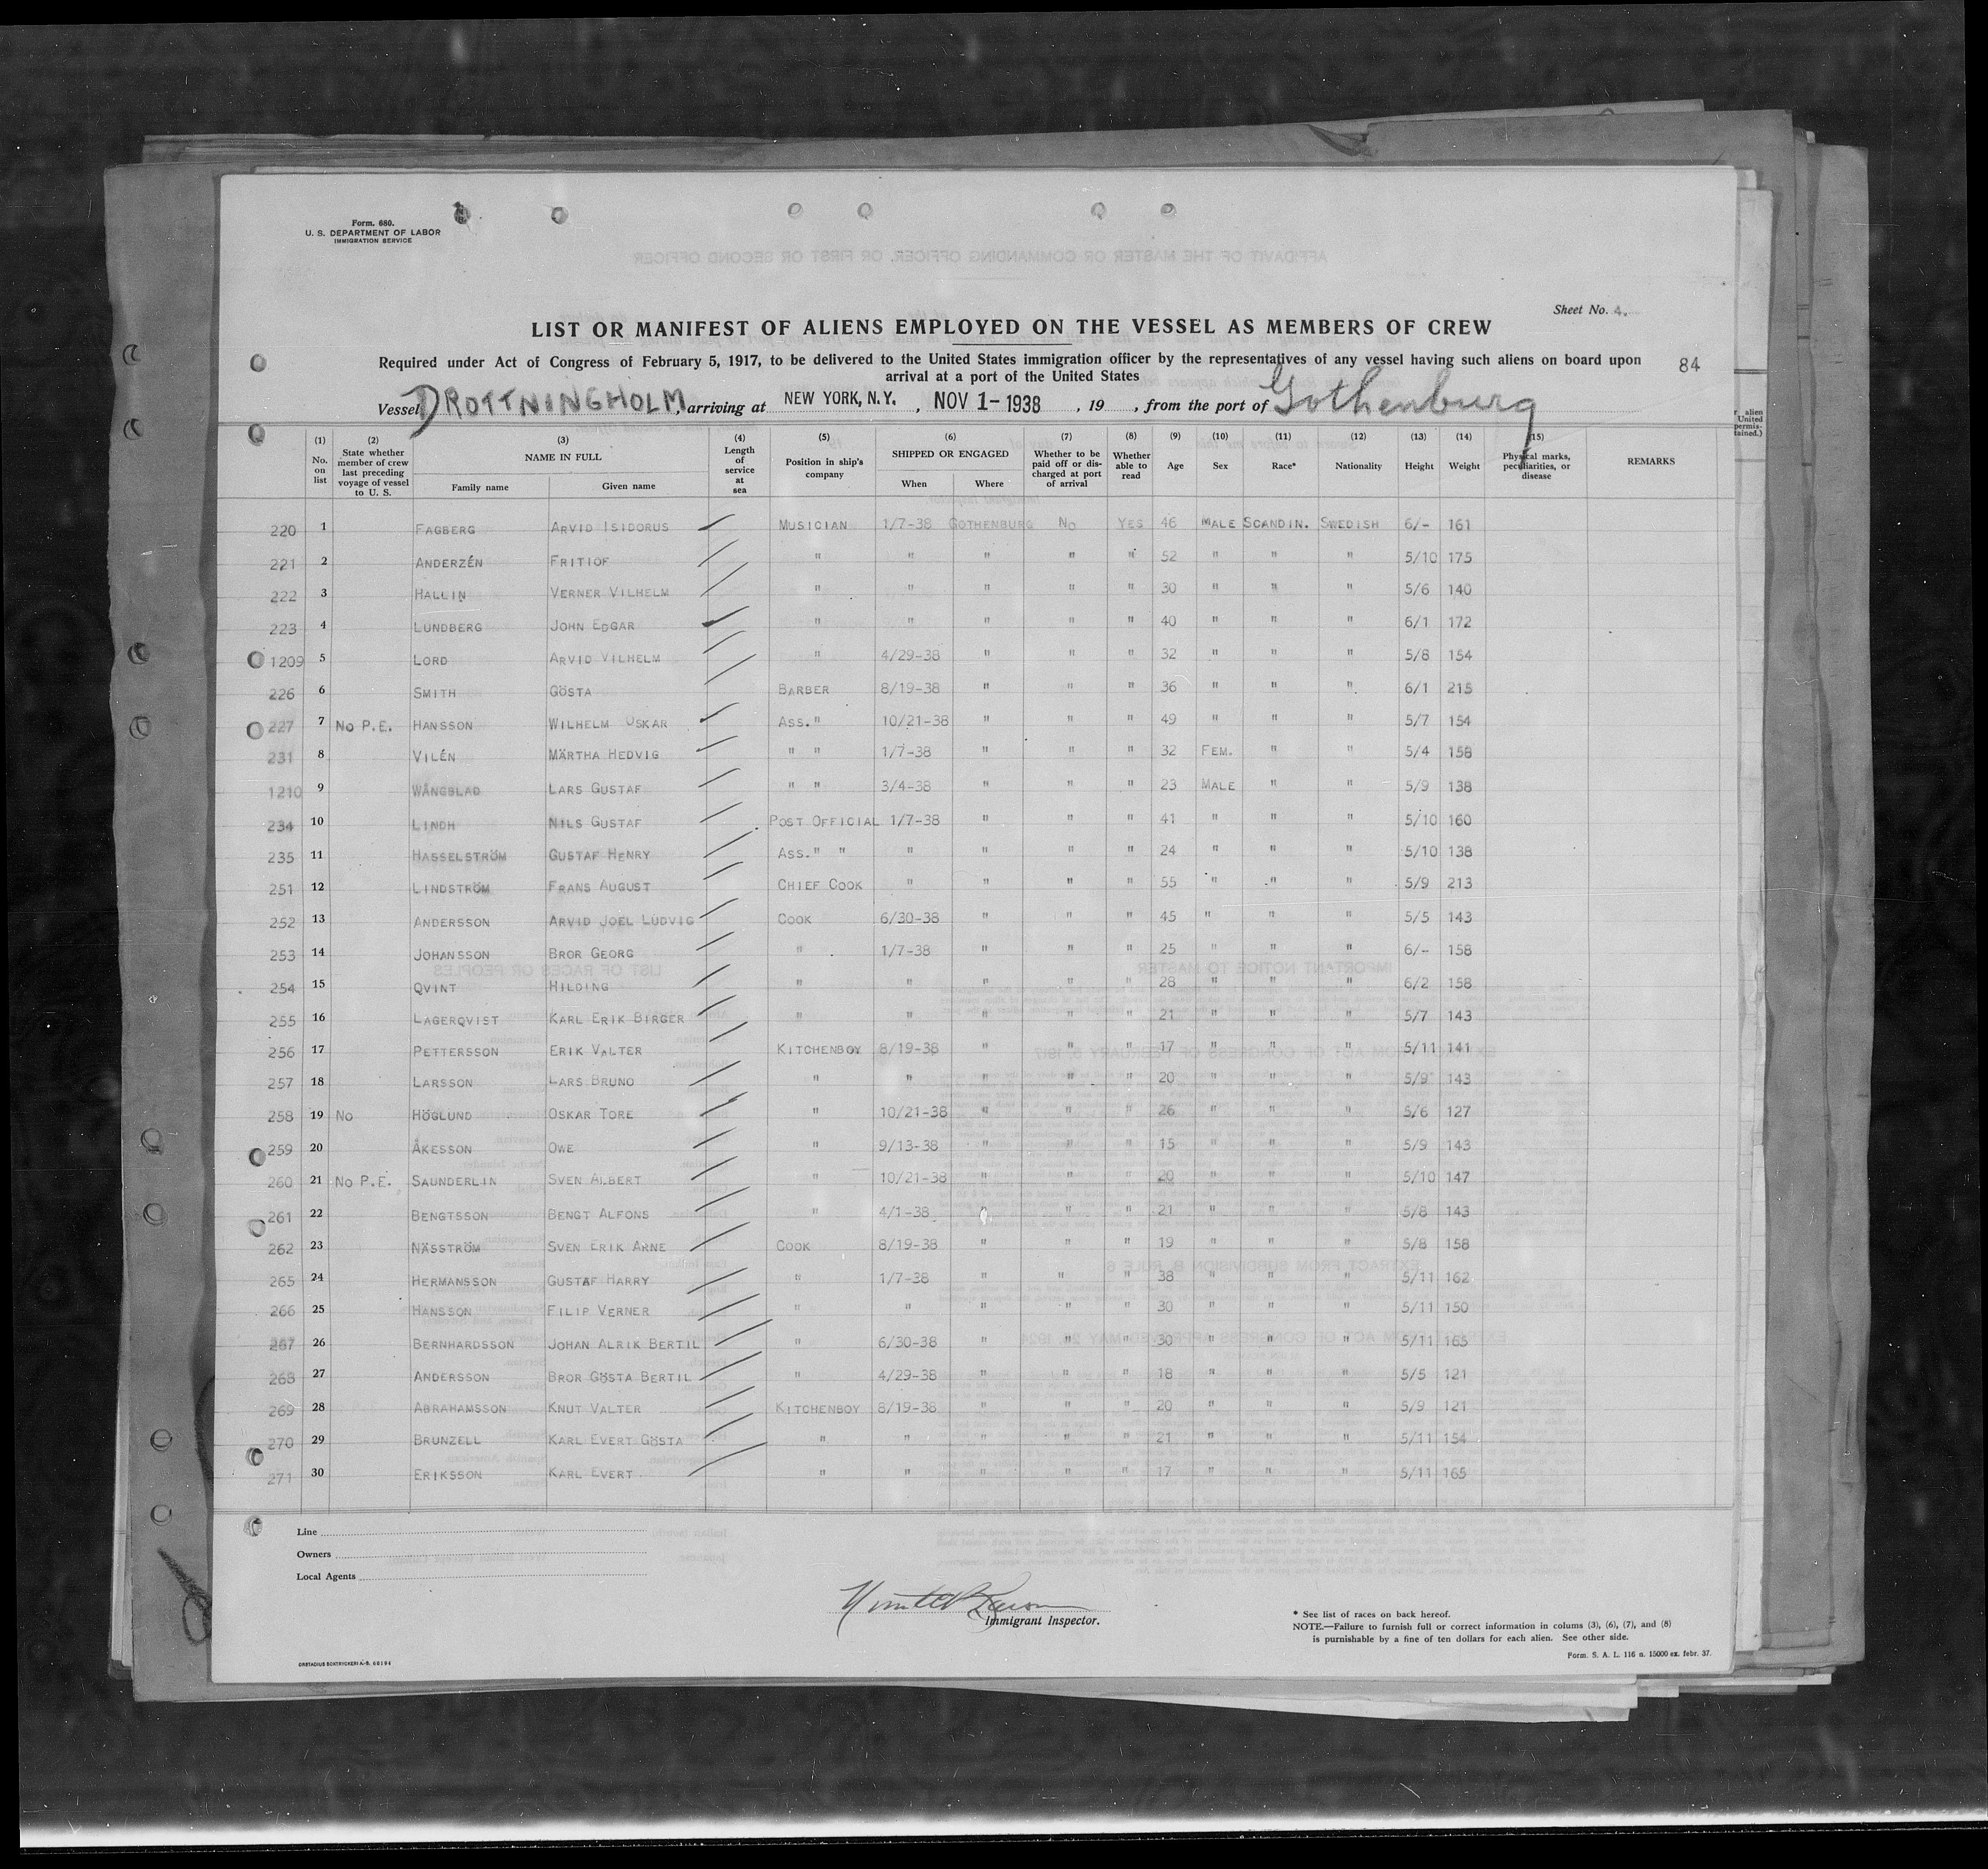 Form. 680.
U. S. DEPARTMENT OF LABOR
IMMIGRATION SERVICE
AFFIDAVIT OF THE MASTER OR COMMANDING OFFICER, OR FIRST OR SECOND OFFICER
Sheet No. 4.
LIST OR MANIFEST OF ALIENS EMPLOYED ON THE VESSEL AS MEMBERS OF CREW
Required under Act of Congress of February 5, 1917, to be delivered to the United States immigration officer by the representatives of any vessel having such aliens on board upon
arrival at a port of the United States
84
Vessel DROTTNINGHOLM, arriving at NEW YORK, N.Y., NOV 1-1938, 19 , from the port of Gothenburg
(1) No. on list (2) State whether member of crew last preceding voyage of vessel to U. S. (3) NAME IN FULL Family name Given name (4) Length of service at sea (5) Position in ship's company (6) SHIPPED OR ENGAGED When Where (7) Whether to be paid off or discharged at port of arrival (8) Whether able to read (9) Age (10) Sex (11) Race* (12) Nationality (13) Height (14) Weight (15) Physical marks, peculiarities, or disease REMARKS
220 1 FAGBERG ARVID ISIDORUS MUSICIAN 1/7-38 GOTHENBURG NO YES 46 MALE SCANDIN. SWEDISH 6/- 161
221 2 ANDERZÉN FRITIOF " " " " " 52 " " " 5/10 175
222 3 HALLIN VERNER VILHELM " " " " " 30 " " " 5/6 140
223 4 LUNDBERG JOHN EDGAR " " " " " 40 " " " 6/1 172
1209 5 LORD ARVID VILHELM " 4/29-38 " " " 32 " " " 5/8 154
226 6 SMITH GÖSTA BARBER 8/19-38 " " " 36 " " " 6/1 215
227 7 NO P.E. HANSSON WILHELM OSKAR ASS. " 10/21-38 " " " 49 " " " 5/7 154
231 8 VILÉN MÄRTHA HEDVIG " " 1/7-38 " " " 32 FEM. " " 5/4 158
1210 9 WÅNGBLAD LARS GUSTAF " " 3/4-38 " " " 23 MALE " " 5/9 138
234 10 LINDH NILS GUSTAF POST OFFICIAL 1/7-38 " " " 41 " " " 5/10 160
235 11 HASSELSTRÖM GUSTAF HENRY ASS. " " " " " " 24 " " " 5/10 138
251 12 LINDSTRÖM FRANS AUGUST CHIEF COOK " " " " 55 " " " 5/9 213
252 13 ANDERSSON ARVID JOEL LUDVIG COOK 6/30-38 " " " 45 " " " 5/5 143
253 14 JOHANSSON BROR GEORG " 1/7-38 " " " 25 " " " 6/- 158
254 15 QVINT HILDING " " " " " 28 " " " 6/2 158
255 16 LAGERQVIST KARL ERIK BIRGER " " " " " 21 " " " 5/7 143
256 17 PETTERSSON ERIK VALTER KITCHENBOY 8/19-38 " " " 17 " " " 5/11 141
257 18 LARSSON LARS BRUNO " " " " " 20 " " " 5/9 143
258 19 NO HÖGLUND OSKAR TORE " 10/21-38 " " " 26 " " " 5/6 127
259 20 ÅKESSON OWE " 9/13-38 " " " 15 " " " 5/9 143
260 21 NO P.E. SAUNDERLIN SVEN ALBERT " 10/21-38 " " " 20 " " " 5/10 147
261 22 BENGTSSON BENGT ALFONS " 4/1-38 " " " 21 " " " 5/8 143
262 23 NÄSSTRÖM SVEN ERIK ARNE COOK 8/19-38 " " " 19 " " " 5/8 158
265 24 HERMANSSON GUSTAF HARRY " 1/7-38 " " " 38 " " " 5/11 162
266 25 HANSSON FILIP VERNER " " " " " 30 " " " 5/11 150
267 26 BERNHARDSSON JOHAN ALRIK BERTIL " 6/30-38 " " " 30 " " " 5/11 165
268 27 ANDERSSON BROR GÖSTA BERTIL " 4/29-38 " " " 18 " " " 5/5 121
269 28 ABRAHAMSSON KNUT VALTER KITCHENBOY 8/19-38 " " " 20 " " " 5/9 121
270 29 BRUNZELL KARL EVERT GÖSTA " " " " " 21 " " " 5/11 154
271 30 ERIKSSON KARL EVERT " " " " " 17 " " " 5/11 165
Line
Owners
Local Agents
Immigrant Inspector.
* See list of races on back hereof.
NOTE.—Failure to furnish full or correct information in colums (3), (6), (7), and (8)
is punishable by a fine of ten dollars for each alien. See other side.
Form. S. A. L. 116 n. 15000 ex. febr. 37.